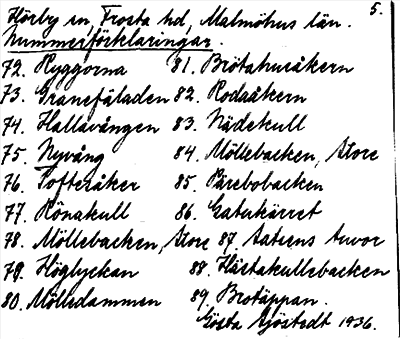 5.
Hörby sn, Frosta hd, Malmöhus län.
Nummerförklaringar.
72. Ryggorna 81. Brötahusåkern
73. Granefäladen 82. Rodaåkern
74. Hallavången 83. Nädekull
75. Nyvång 84. Möllebacken, Store
76. Tofteråker 85. Pärebobacken
77. Rönakull 86. Gatukärret
78. Möllebacken, Store 87. tuvor
79. Höglyckan 88. Hästakullebacken
80. Mölledammen 89. Brotäppan.
Gösta Sjöstedt 1936.